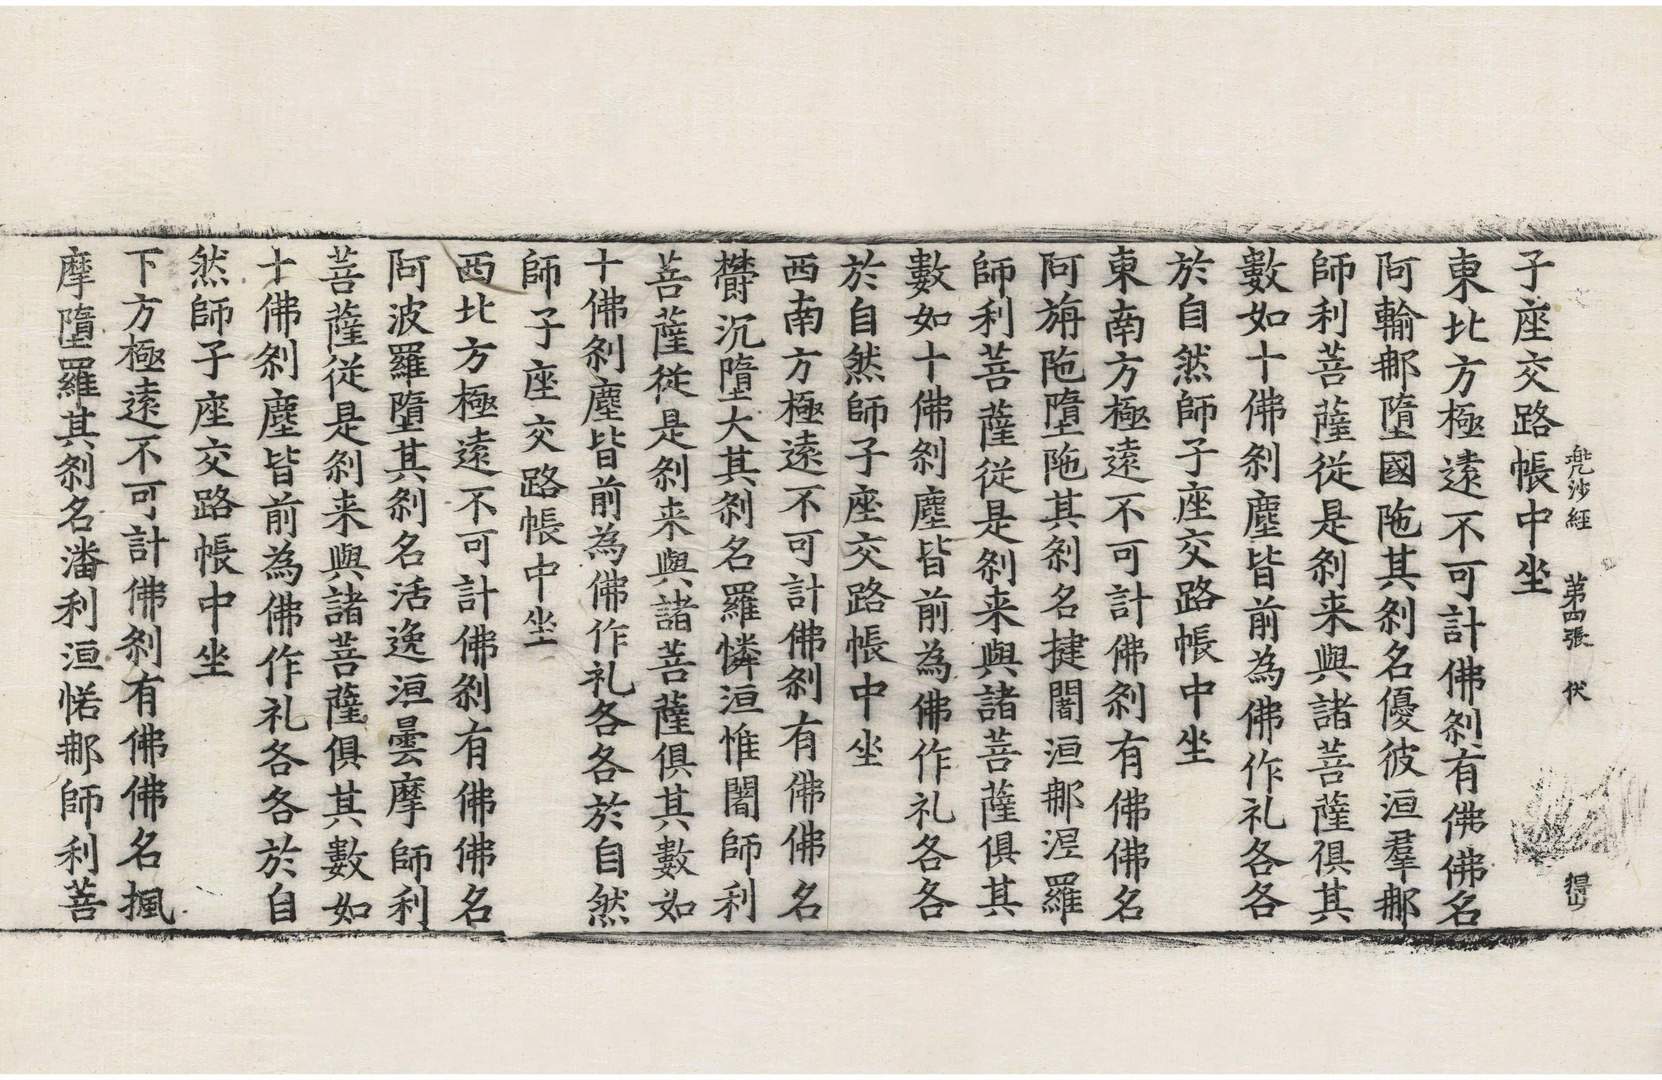 兜沙經 第四張 伏 得山
子座交路帳中坐
東北方極遠不可計佛剎有佛佛名
阿輸那墮國陁其剎名優彼洹羣那
師利菩薩從是剎来與諸菩薩俱其
數如十佛剎塵皆前為佛作礼各各
於自然師子座交路帳中坐
東南方極遠不可計佛剎有佛佛名
阿旃陁墮陁其剎名揵闍洹那涅羅
師利菩薩從是剎来與諸菩薩俱其
數如十佛剎塵皆前為佛作礼各各
於自然師子座交路帳中坐
西南方極遠不可計佛剎有佛佛名
欝沉墮大其剎名羅憐洹惟闍師利
菩薩從是剎来與諸菩薩俱其數如
十佛剎塵皆前為佛作礼各各於自然
師子座交路帳中坐
西北方極遠不可計佛剎有佛佛名
阿波羅墮其剎名活逸洹曇摩師利
菩薩從是剎来與諸菩薩俱其數如
十佛剎塵皆前為佛作礼各各於自
然師子座交路帳中坐
下方極遠不可計佛剎有佛佛名捤
摩墮羅其剎名潘利洹惜那師利菩